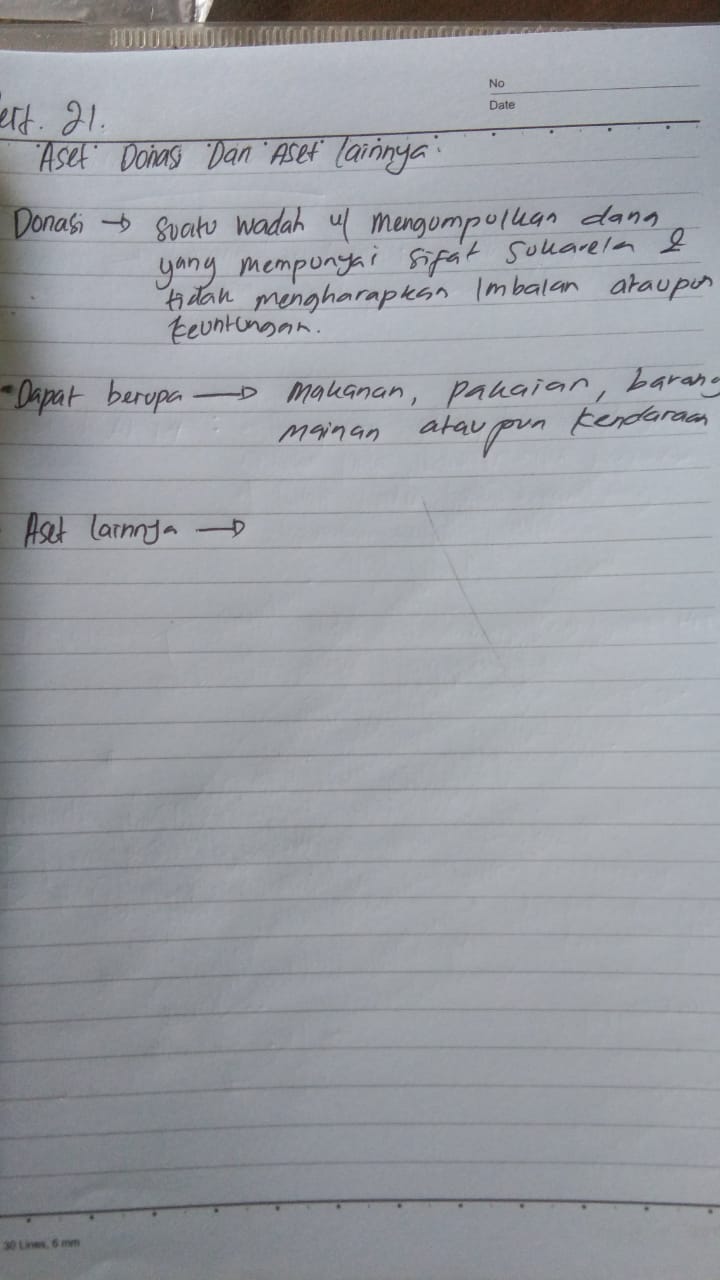 No
Date
ert. 21.
"Aset Donasi Dan Aset lainnya:
Donasi → Suatu wadah u/ mengumpulkan dana
yang mempunyai sifat sukarela &
tidak mengharapkan Imbalan ataupun
keuntungan.
Dapat berupa → Makanan, pakaian, barang
Mainan ataupun kendaraan
Aset lainnya →
30 Lines, 6 mm